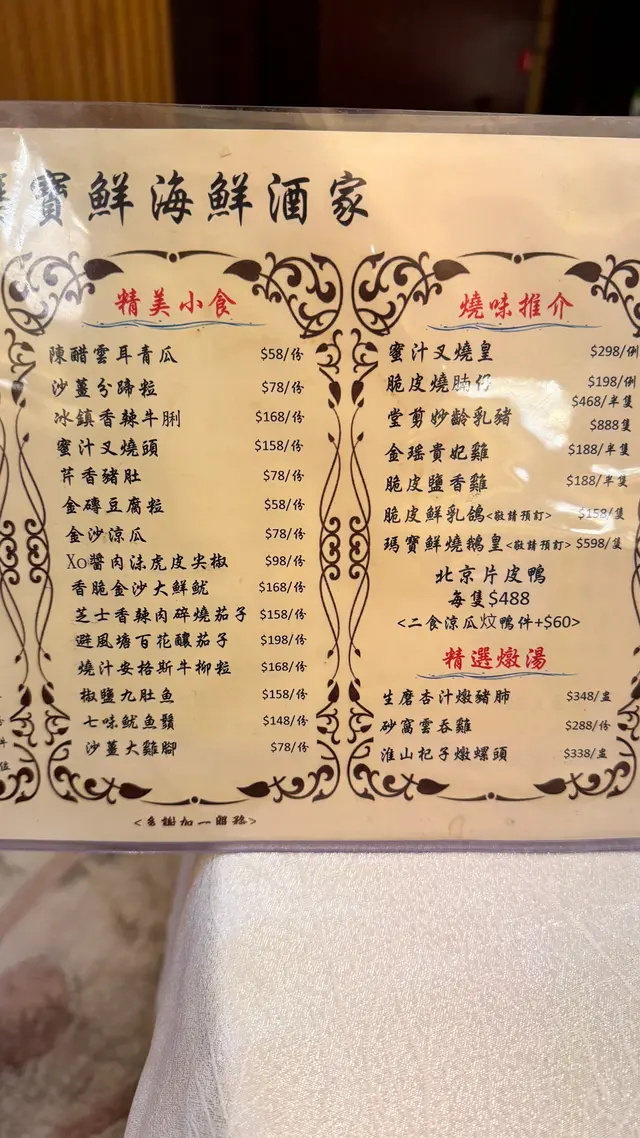 寶鮮海鮮酒家
精美小食
陳醋雲耳青瓜 $58/份
沙薑分蹄粒 $78/份
冰鎮香辣牛脷 $168/份
蜜汁叉燒頭 $158/份
芹香豬肚 $78/份
金磚豆腐粒 $58/份
金沙涼瓜 $78/份
Xo醬肉沫虎皮尖椒 $98/份
香脆金沙大鮮魷 $168/份
芝士香辣肉碎燒茄子 $158/份
避風塘百花釀茄子 $198/份
燒汁安格斯牛柳粒 $168/份
椒鹽九肚魚 $158/份
七味魷魚鬚 $148/份
沙薑大雞腳 $78/份
<多謝加一服務>
燒味推介
蜜汁叉燒皇 $298/例
脆皮燒腩仔 $198/例
$468/半隻
堂剪妙齡乳豬 $888隻
金瑤貴妃雞 $188/半隻
脆皮鹽香雞 $188/半隻
脆皮鮮乳鴿<敬請預訂> $158/隻
瑪寶鮮燒鵝皇<敬請預訂> $598/隻
北京片皮鴨
每隻$488
<二食涼瓜炆鴨件+$60>
精選燉湯
生磨杏汁燉豬肺 $348/盅
砂窩雲吞雞 $288/份
淮山杞子燉螺頭 $338/盅